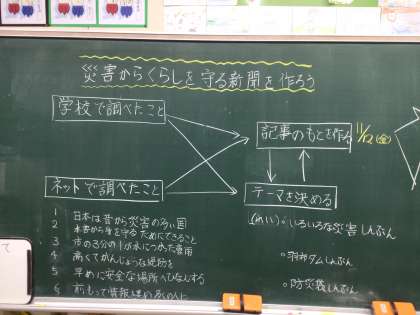 災害からくらしを守る新聞を作ろう
学校で調べたこと
記事のもとを作る
11/12(金)
ネットで調べたこと
テーマを決める
1 日本は昔から災害の多い国
2 水害から身を守るためにできること
3 市の3分の1が水につかった
4 高くてがんじょうな堤防を
5 早めに安全な場所へひなんする
6 前もって情報
(めい)。いろいろな災害しんぶん
ダムしんぶん
。防災袋しんぶん
て